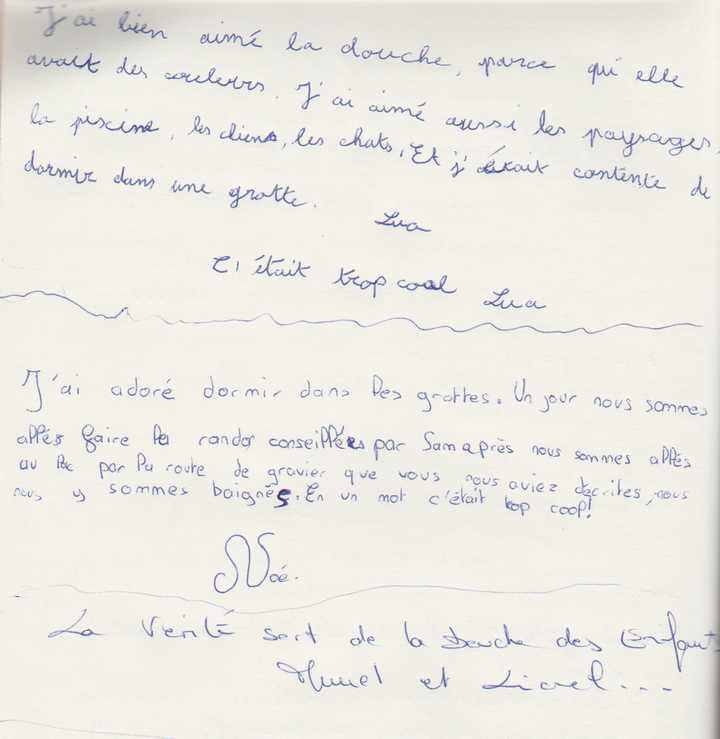 J'ai bien aimé la douche, parce qui elle
avait des couleurs. J'ai aimé aussi les paysages,
la piscine, les chiens, les chats, Et j'était contente de
dormir dans une grotte.
Lua
C'était trop cool Lua
J'ai adoré dormir dans les grottes. Un jour nous sommes
allés faire la rando conseillées par Sam après nous sommes allés
au lac par la route de gravier que vous nous aviez décrites, nous
nous y sommes baignés. En un mot c'était trop cool!
Noé.
La Vérité sort de la bouche des Enfants
Muriel et Lionel...